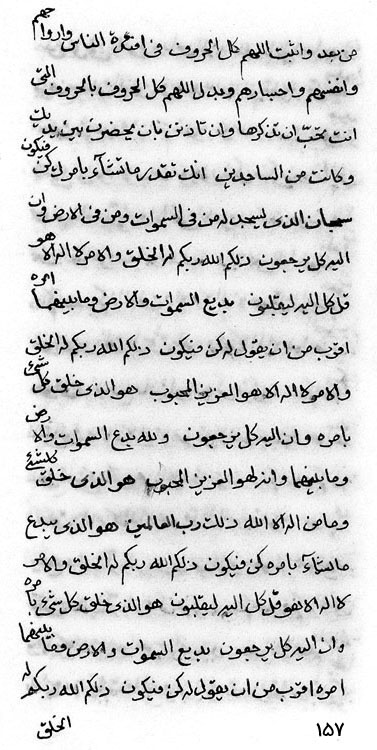 من بعد واثبت اللهم كل الحروف فى افئدة الناس وارواحهم
وانفسهم واجسادهم وبدل اللهم كل الحروف بالحروف التى
انت تحب ان تذكرها وان تاذنن بان يحضرن بين يديك
وكانت من الساجدين انك تقدر ماتشآء بامرك كن فيكون
سبحان الذى يسجد له من فى السموات ومن فى الارض وان
اليه كل يرجعون ذلكم الله ربكم له الخلق والامر لا اله الا هو
قل كل اليه ليقلبون بديع السموات والارض ومابينهما امره
اقرب من ان يقول له كن فيكون ذلكم الله ربكم له الخلق
والامر لا اله الا هو العزيز المحبوب هو الذى خلق كل شئ
بامره وان اليه كل يرجعون ولله بدع السموات والارض
ومابينهما وانه لهو العزيز المحبوب هو الذى خلق كلشئ
ومامن اله الا الله ذلك رب العالمين هو الذى يبدع
مايشآء بامره كن فيكون ذلكم الله ربكم له الخلق والامر
لا اله الا هو قل كل اليه ليقلبون هو الذى خلق كل شئ بامره
وان اليه كل يرجعون بديع السموات والارض ومابينهما
امره اقرب من ان يقول له كن فيكون ذلكم الله ربكم له
الخلق
١٥٧